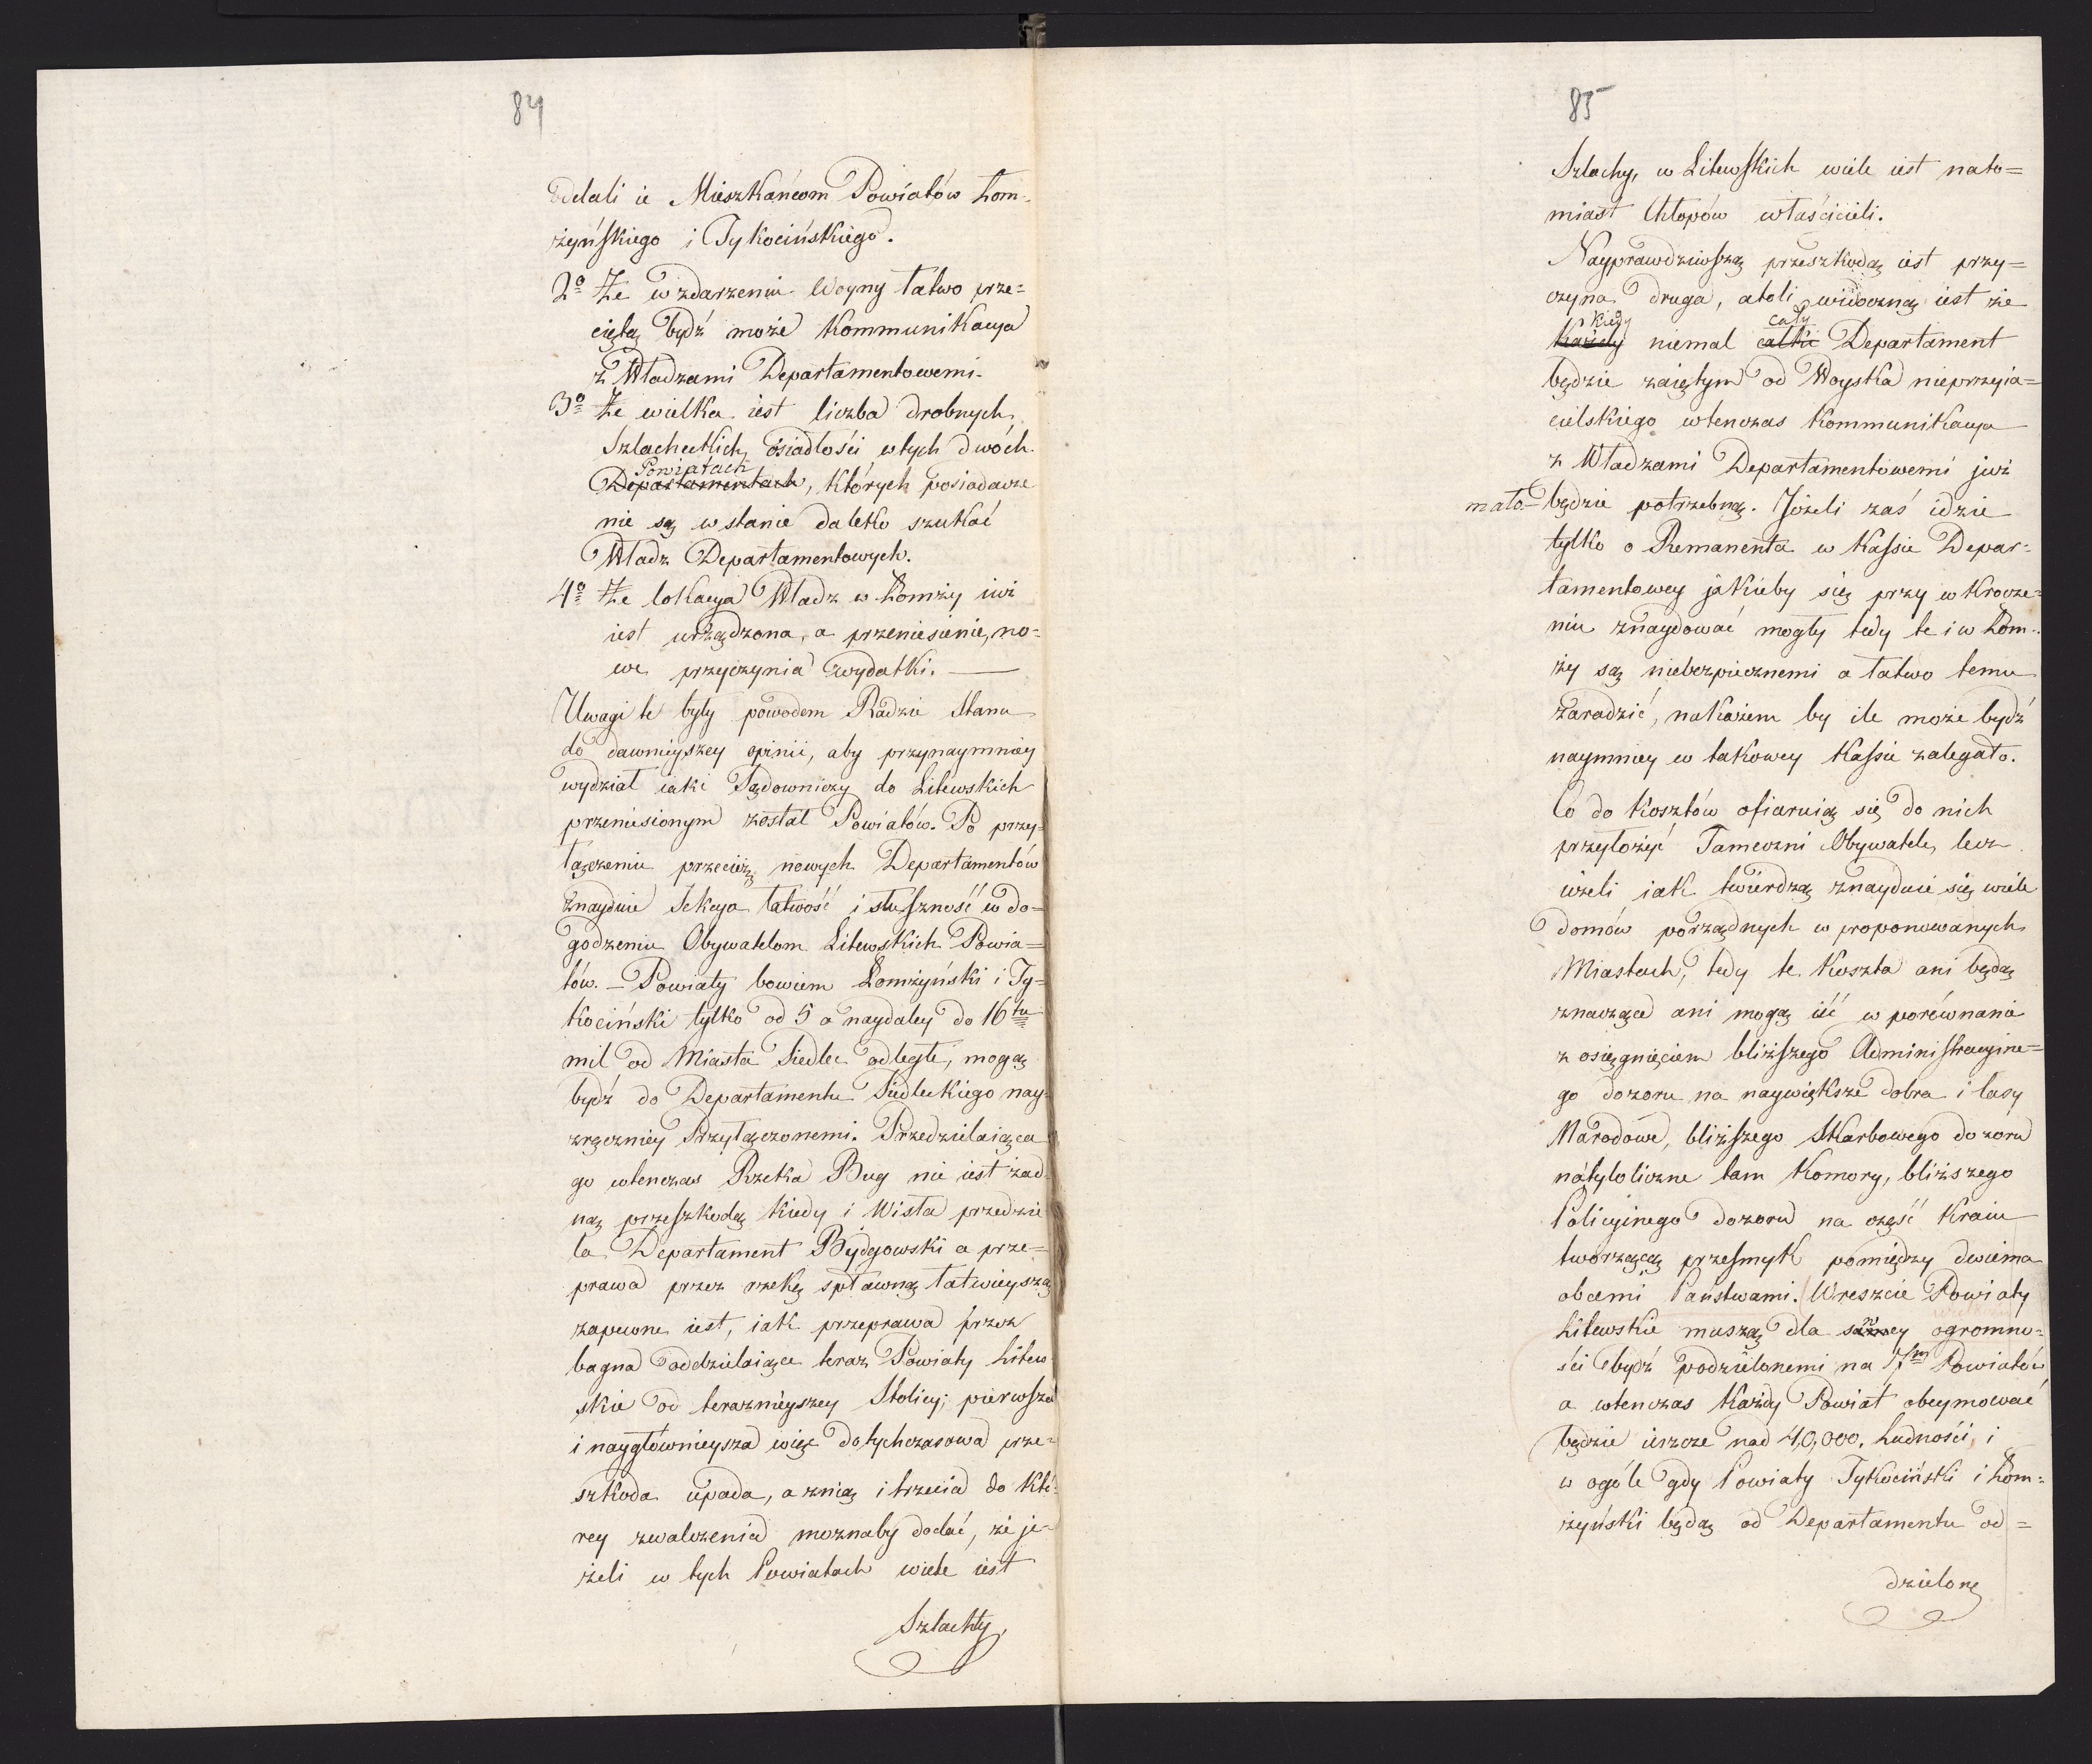 84
oddali ie Mieszkańcom Powiatów Łom-
żyńskiego i Tykocińskiego.
2º Że w zdarzeniu Woyny łatwo prze=
ciętą bydź może Kommunikacya
z Władzami Departamentowemi.
3º Że wielka iest liczba drobnych
Szlacheckich osiadłości w tych dwóch
Powiatach
Departamentach, których posiadacze
nie są w stanie daleko szukać
Władz Departamentowych.
4º Że lokacya Władz w Łomży iuż
iest urządzona, a przeniesienie, no=
we przyczynia wydatki. —
Uwagi te były powodem Radzie Stanu
do dawnieyszey opinii, aby przynaymniey
wydział iaki Sądowniczy do Litewskich
przeniesionym został Powiatów. Po przy=
łączeniu przecież nowych Departamentów
znayduie Sekcya łatwość i słuszność w do=
godzeniu Obywatelom Litewskich Powia=
tów. – Powiaty bowiem Łomżyński i Ty=
kociński tylko od 5 a naydaley do 16tu
mil od Miasta Siedlec odległe, mogą
bydź do Departamentu Siedleckiego nay=
zręczniey Przyłączonemi. Przedzielaiąca
go wtenczas Rzeka Bug nie iest żad
ną przeszkodą kiedy i Wisła przedzie
la Departament Bydgowski a prze=
prawa przez rzekę spławną łatwieyszą
zapewne iest, iak przeprawa przez
bagna oddzielaiące teraz Powiaty Litew
skie od teraznieyszey Stolicy; pierwsza
i naygłównieysza więc dotychczasowa prze=
szkoda upada, a z nią i trzecia do któ=
rey zwalczenia moznaby dodać, że je=
żeli w tych Powiatach wiele iest
Szlachty,
85
Szlachy, w Litewskich wiele iest nato=
miast Chłopów właścicieli.
Nayprawdziwszą przeszkodą iest przy=
czyna druga, atoli widoczną iest że
kiedy cały
każdy niemal całki Departament
będzie zaiętym od Woyska nieprzyia=
cielskiego wtenczas Kommunikacya
z Władzami Departamentowemi już
mało – będzie potrzebną. Jeżeli zaś idzie
tylko o Remanenta w Kassie Depar=
tamentowey jakieby się przy wkrocze=
niu znaydować mogły tedy te i w Łom=
ży są niebezpiecznemi a łatwo temu
zaradzić, nakazem by ile może bydź
naymniey w takowey Kassie zalegało.
Co do Kosztów ofiaruią się do nich
przyłożyć Tameczni Obywatele, lecz
ieżeli iak twierdzą znayduie się wiele
domów porządnych w proponowanych
Miastach, tedy te Koszta ani będą
znaczące ani mogą iść w porównanie
z osięgnięciem bliższego Administracyine=
go dozoru na naywiększe dobra i lasy
Narodowe, bliższego Skarbowego dozoru
na tyloliczne tam Komory, bliższego
Policyinego dozoru na część Kraiu
tworzącą przesmyk pomiędzy dwiema
obcemi Państwami. Wreszcie Powiaty
Litewskie muszą dla samey ogromno=
ści bydź podzielonemi na 7m Powiatów
a wtenczas Każdy Powiat obeymować
będzie ieszcze nad 40,000. Ludności, i
w ogóle gdy Powiaty Tykociński i Łom=
żyński będą od Departamentu od=
dzielone